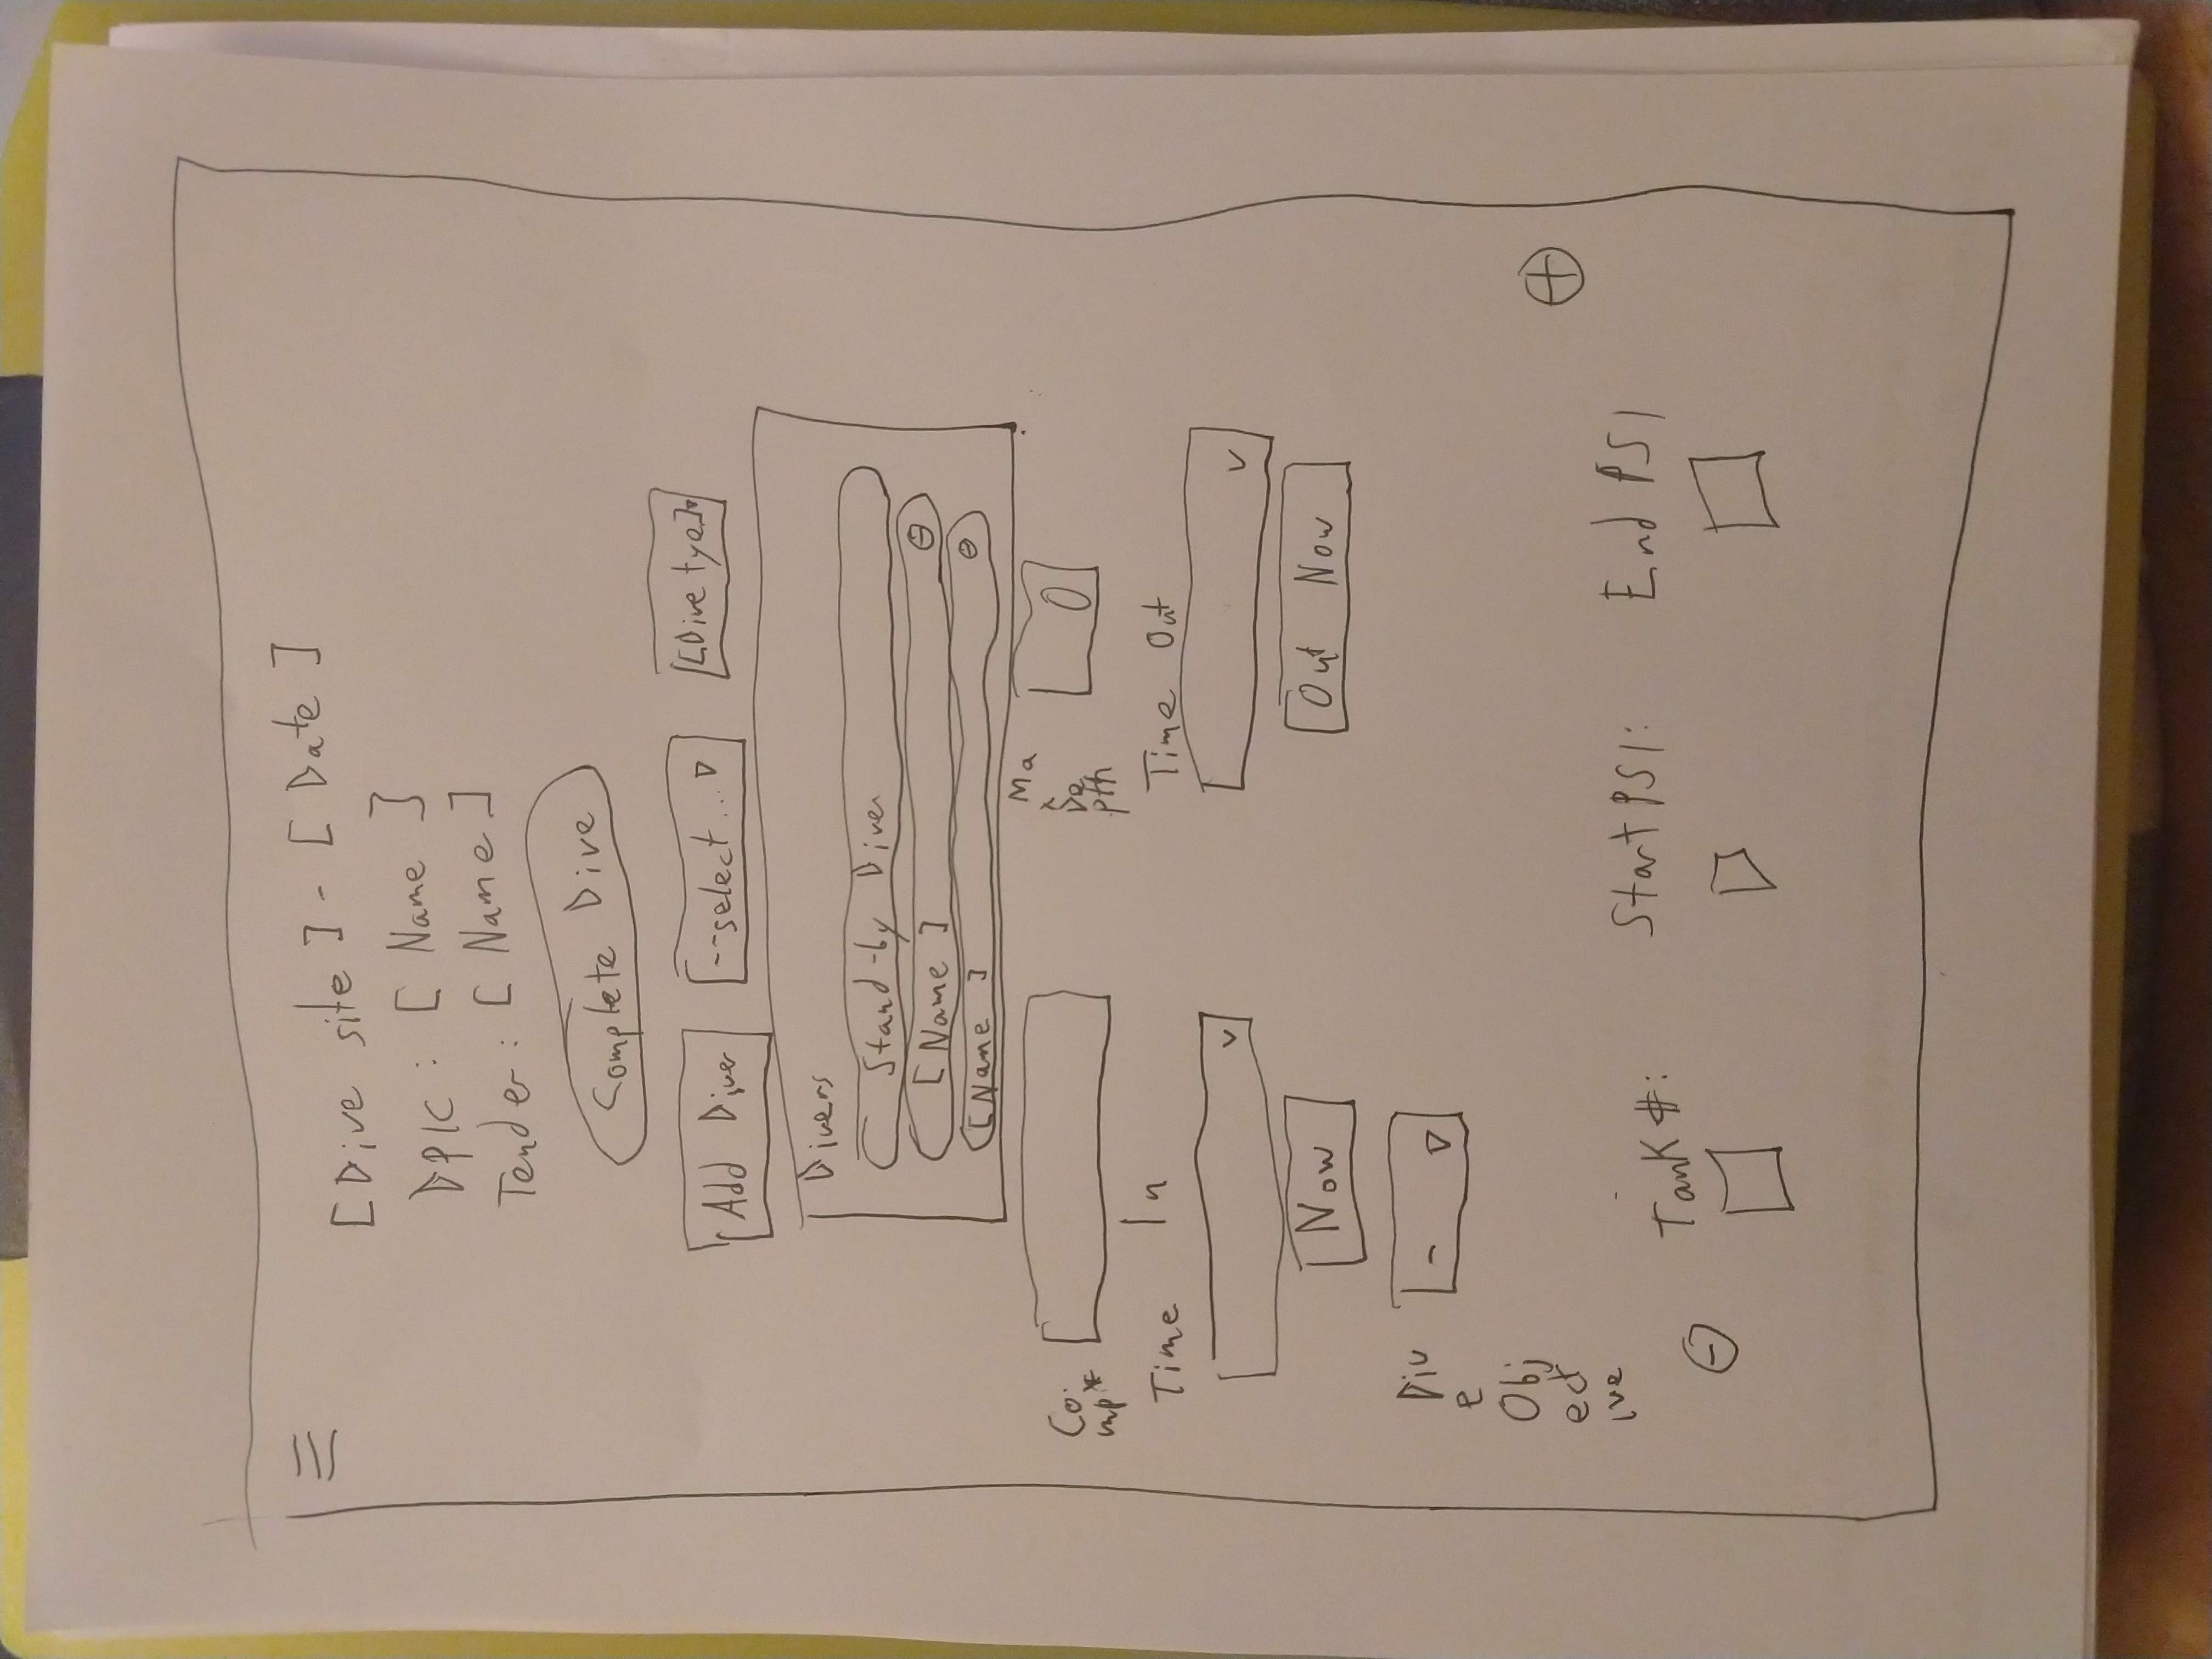 [Dive site] - [Date]
DPIC: [Name]
Tender: [Name]
Complete Dive
Add Diver
--select...
[Dive tye]
Divers
Stand-by Diver
[Name]
[Name]
Co
mp*
Ma
x
De
pth
0
Time In
Time Out
Now
Out Now
Div
e
Obj
ect
ive
-
Tank #:
Start PSI:
End PSI